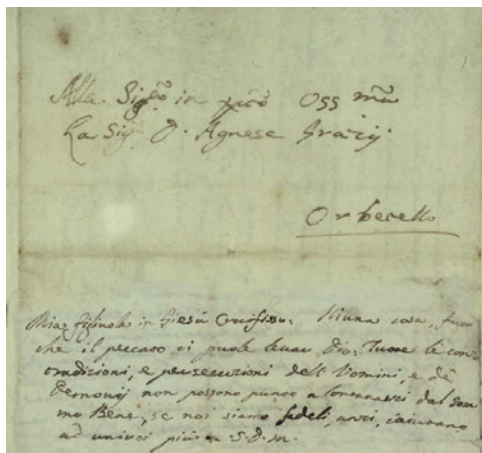 Alla Sig.ra in Xpto Oss.ma
La Sig.ra D. Agnese Grazij.
Orbetello
Mia figliuola in Giesù Crocifisso. Niuna cosa, fuori
che il peccato ci puole levar Dio: Tutte le con-
tradizioni, e persecuzioni dell'Uomini, e de
Demonij non possono punto alontanarci dal Som
mo Bene, se noi siamo fedeli, anzi, c'aiutano
ad unirci più a S. D. M.